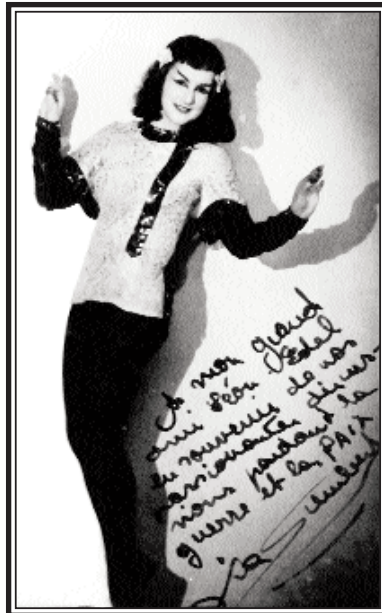 To mon grand
ami Léon Edel
en souvenir de nos
passionantes discus-
sions pendant la
guerre et la PAIX